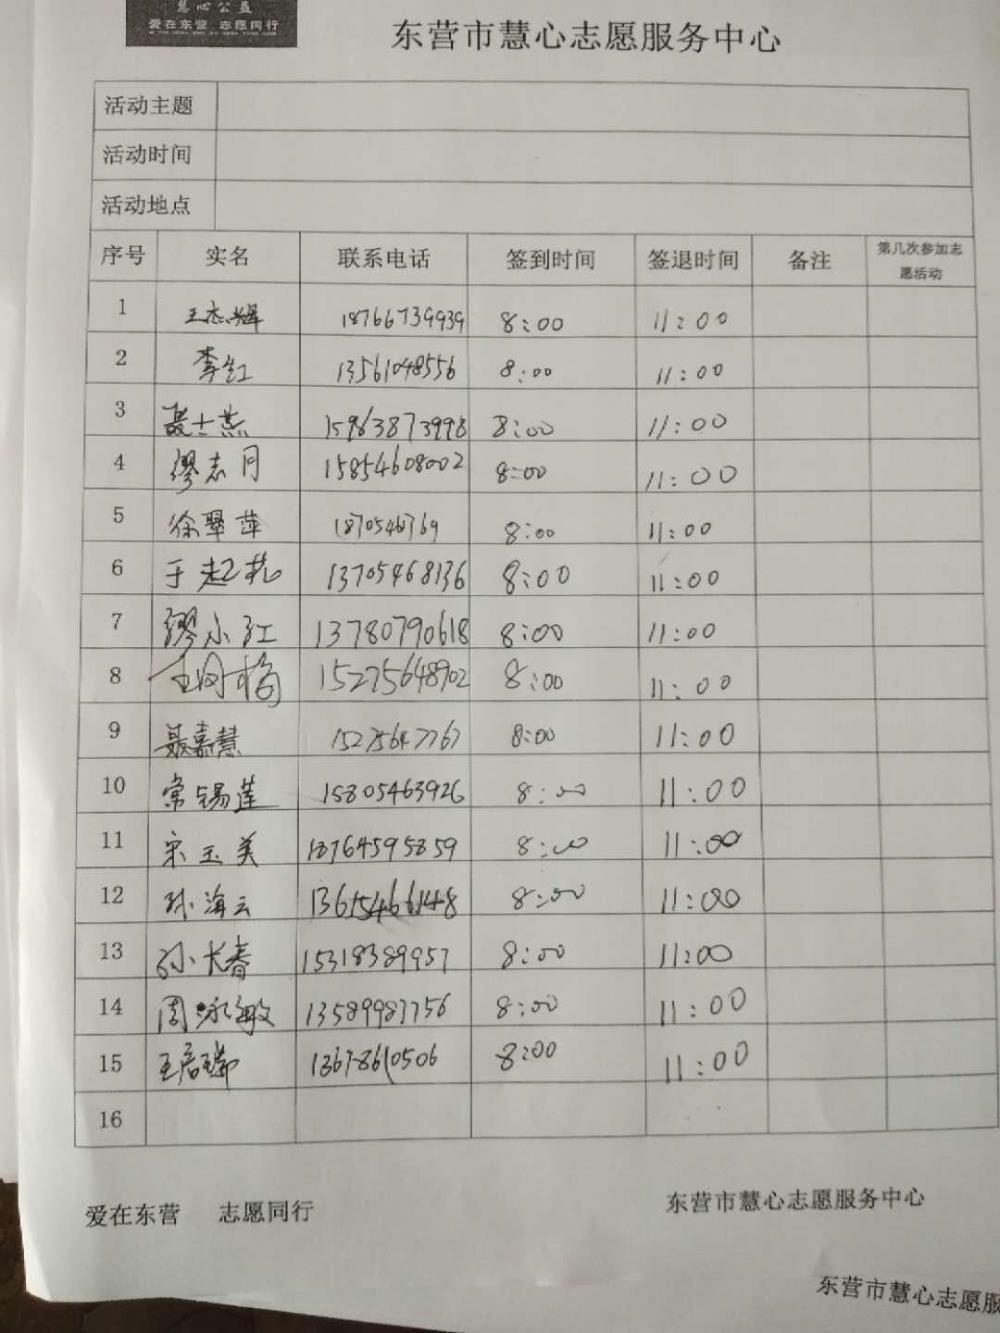 慧心公益
爱在东营 志愿同行
东营市慧心志愿服务中心
活动主题
活动时间
活动地点
序号 实名 联系电话 签到时间 签退时间 备注 第几次参加志愿活动
1 王志辉 18766739939 8:00 11:00
2 李红 13561048556 8:00 11:00
3 聂士燕 15963873998 8:00 11:00
4 缪志月 15854608002 8:00 11:00
5 徐翠萍 8:00 11:00
6 于起花 13705468136 8:00 11:00
7 缪小红 13780790618 8:00 11:00
8 15275648902 8:00 11:00
9 聂嘉慧 15275647767 8:00 11:00
10 常锡莲 15805463926 8:00 11:00
11 宋玉美 18764595859 8:00 11:00
12 孙海云 13615466148 8:00 11:00
13 孙长春 15318389957 8:00 11:00
14 周咏敏 13589987756 8:00 11:00
15 8:00 11:00
16
爱在东营 志愿同行 东营市慧心志愿服务中心
东营市慧心志愿服